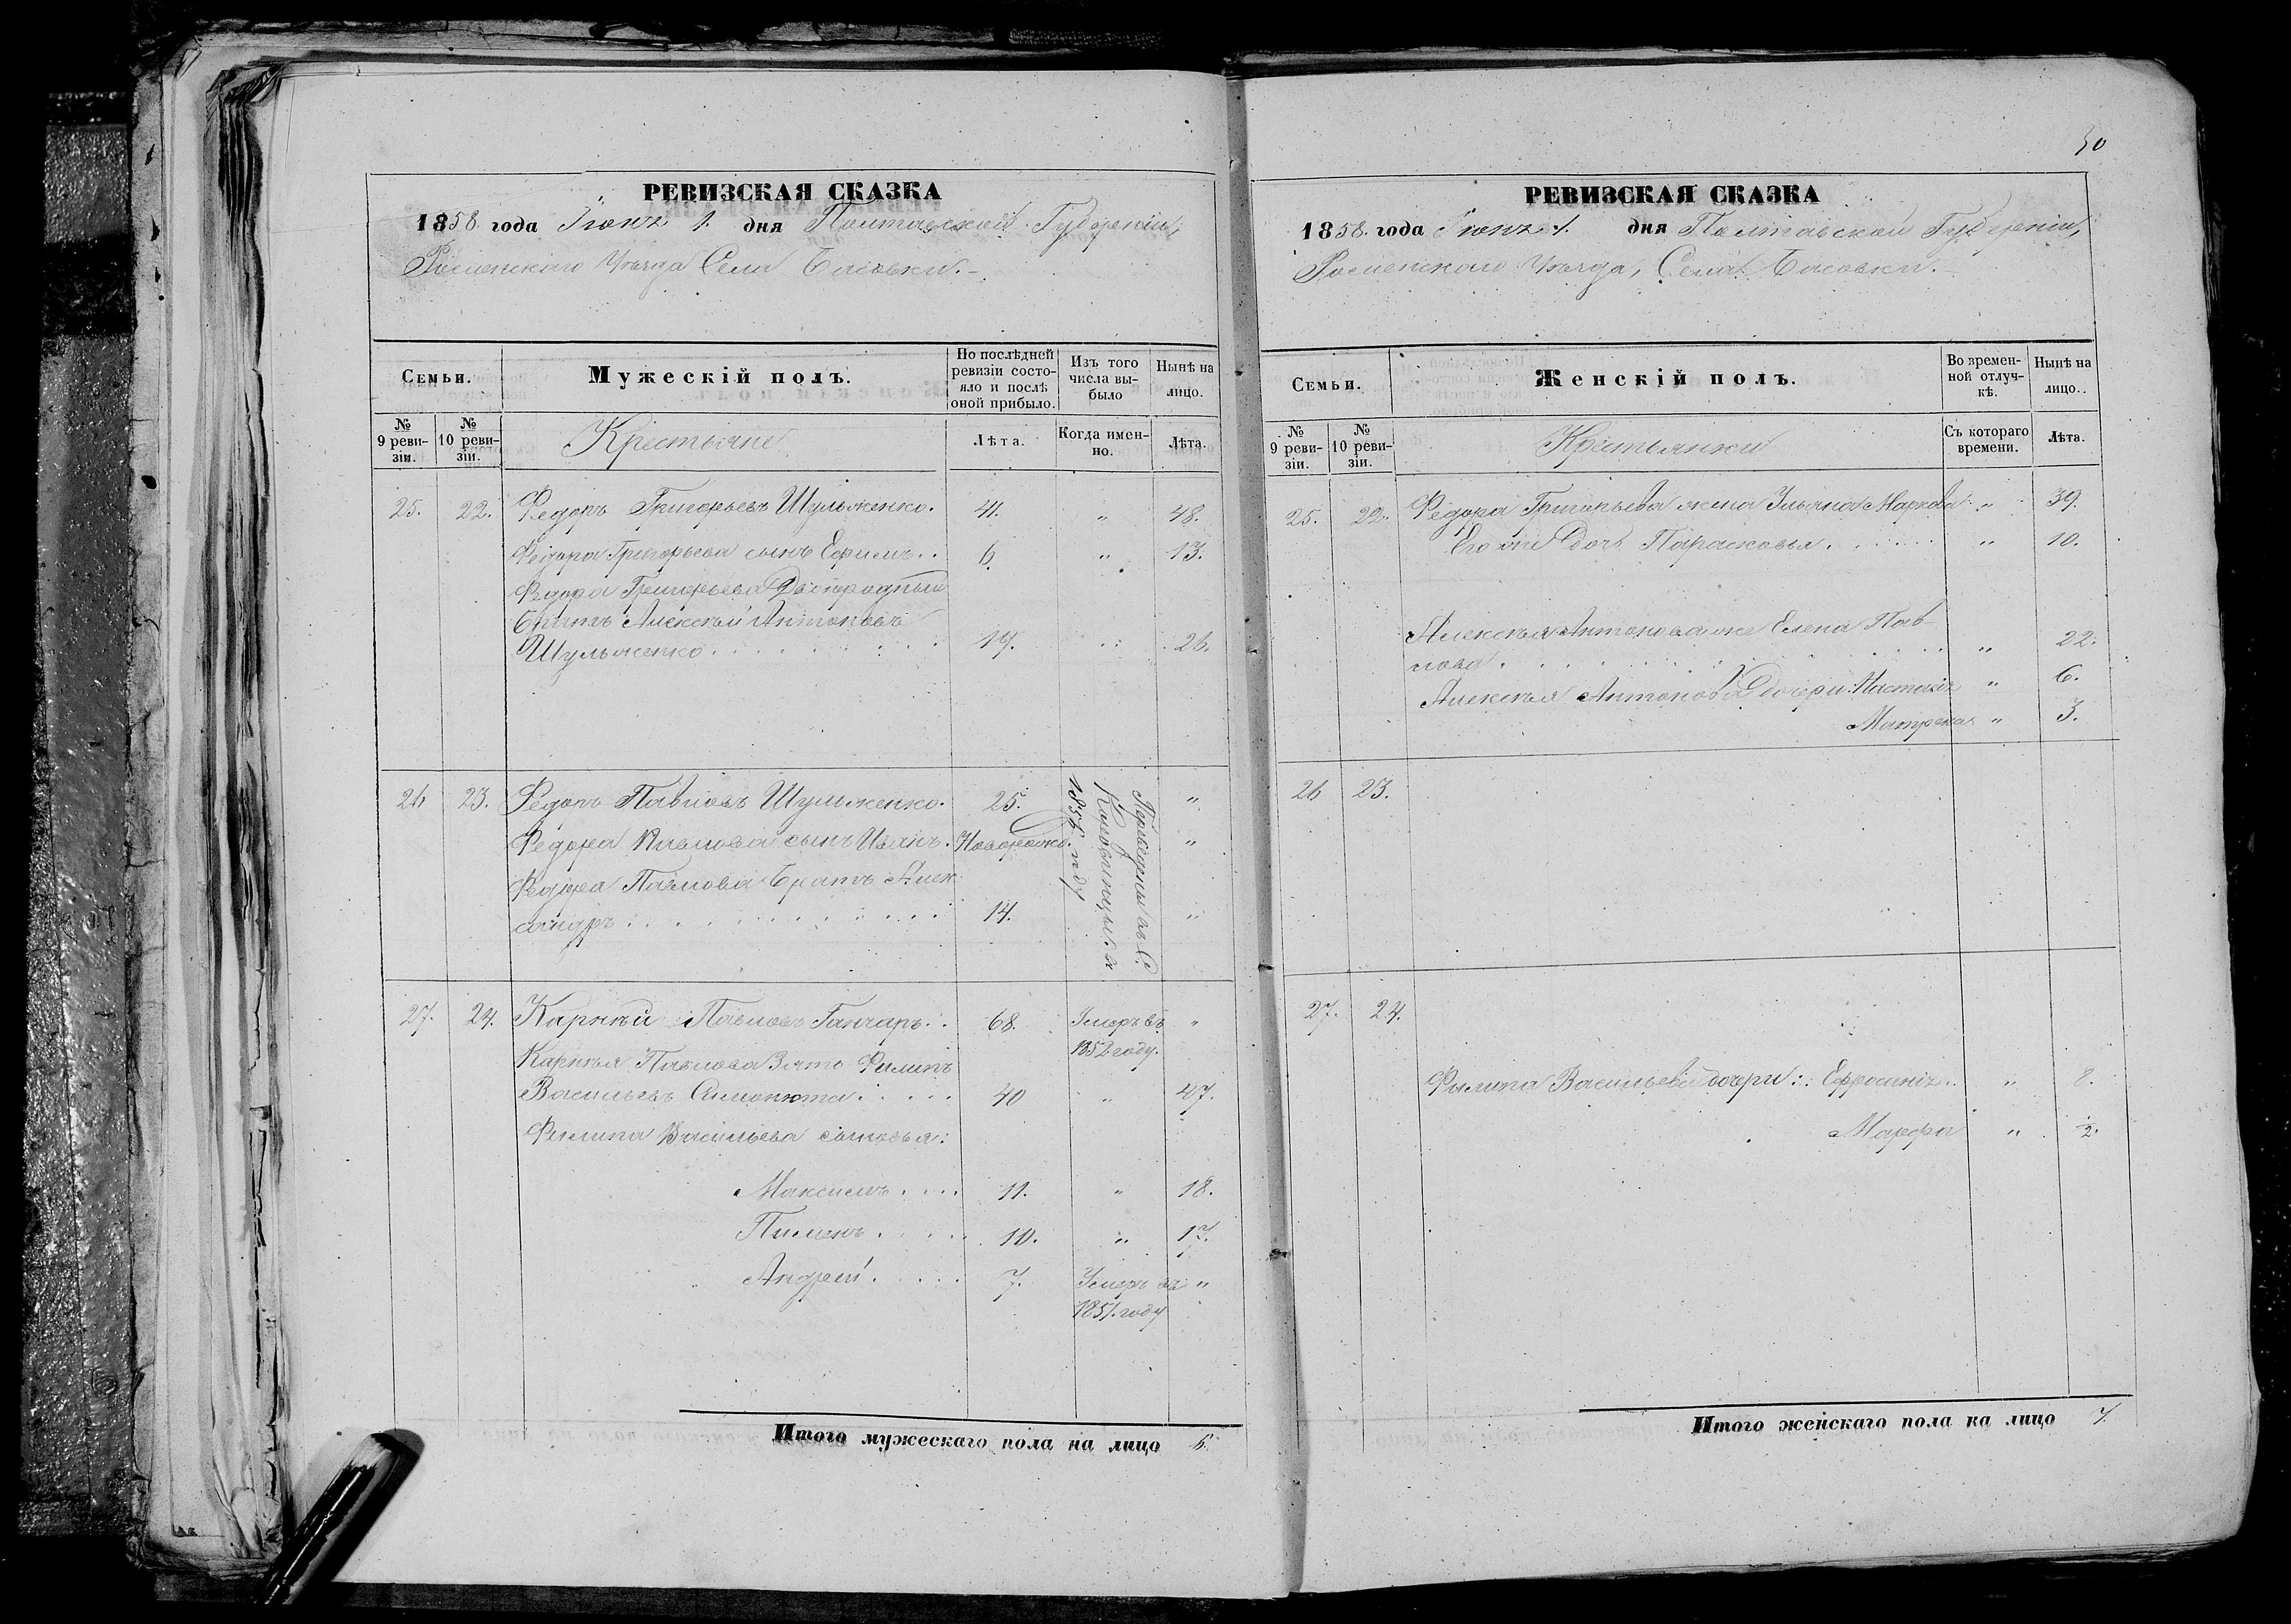 50
РЕВИЗСКАЯ СКАЗКА
1858. года Іюня 1. дня Полтавской Губерніи,
Роменскаго Уѣзда Села Басовки.
Семьи.
Мужескій полъ.
По послѣдней ревизіи состояло и послѣ оной прибыло.
Изъ того числа выбыло
Нынѣ на лицо.
№ 9 ревизіи.
№ 10 ревизіи.
Крестьяне
Лѣта.
Когда именно.
Лѣта.
25. 22. Федоръ Григорьевъ Шульженко. 41. " 48.
Федора Григорьева сынъ Ефимъ. . 6 " 13.
Федора Григорьева Двоюродный
Братъ Алексѣй Антоновъ
Шульженко . . . . . . . . 19. " 26.
26 23. Федоръ Павловъ Шульженко. 25. "
Федора Павлова сынъ Иванъ. Новорожд. "
Федора Павлова Братъ Алек
сандръ . . . . . . . . . . 14. "
Переведены въ С.
27. 24. Карпѣй Павловъ Ганчаръ. . 68. Умеръ въ "
1852 году.
Карпѣя Павлова Зять Филипъ
Васильевъ Симонюта . . . . . 40 " 47.
Филипа Васильева сыновья:
Максимъ . . . . 11. " 18.
Пименъ . . . . . 10. " 17.
Андрей . . . . . 7. Умеръ въ "
1851. году
Итого мужескаго пола на лицо
РЕВИЗСКАЯ СКАЗКА
1858. года Іюня 1. дня Полтавской Губерніи,
Роменскаго Уѣзда, Села Басовки.
Семьи.
Женскій полъ.
Во временной отлучкѣ.
Нынѣ на лицо.
№ 9 ревизіи.
№ 10 ревизіи.
Крестьянки
Съ котораго времени.
Лѣта.
25. 22. Федора Григорьева жена Ульяна Маркова " 39.
Его же Дочь Парасковья . . . . . " 10.
Алексѣя Антонова же Елена Пав-
лова . . . . . . . . . . " 22.
Алексѣя Антонова Дочери: Настасія " 6.
Матрена " 3.
26 23.
27. 24.
Филипа Васильева дочери: Ефросинія. . " 8.
Марфа " 2.
Итого женскаго пола на лицо 7.